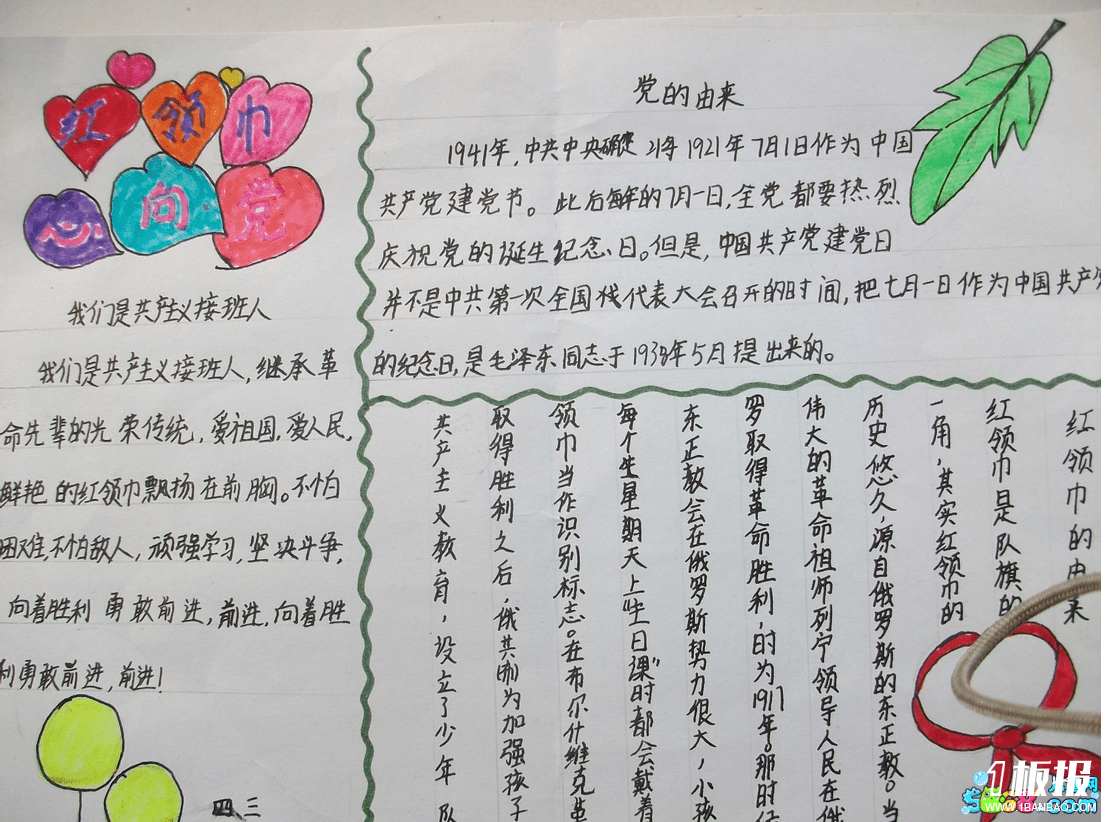 红领巾
心向党
我们是共产主义接班人
我们是共产主义接班人,继承革
命先辈的光荣传统,爱祖国,爱人民,
鲜艳的红领巾飘扬在前胸。不怕
困难,不怕敌人,顽强学习,坚决斗争,
向着胜利勇敢前进,前进,向着胜
利勇敢前进,前进!
四 三
党的由来
1941年,中共中央确定 1921年7月1日作为中国
共产党建党节。此后每年的7月一日,全党都要热烈
庆祝党的诞生纪念日。但是,中国共产党建党日
并不是中共第一次全国代表大会召开的时间,把七月一日作为中国共产党
的纪念日,是毛泽东同志于1938年5月提出来的。
红领巾的由来
红领巾是队旗的
一角,其实红领巾的
历史悠久,源自俄罗斯的东正教。当
伟大的革命祖师列宁领导人民在俄
罗取得革命胜利,时为1917年。那时
东正教会在俄罗斯势力很大,小孩
每个生星期天上“生日课”时都会戴着
领巾当作识别标志。在布尔什维克革
取得胜利之后,俄共为加强孩子
共产主义教育,设立了少年队
1板报
WWW.1BANBAO.COM